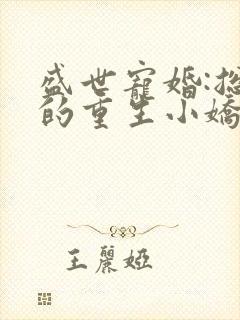 盛世寵婚:
的重生小嬌
王麗婭